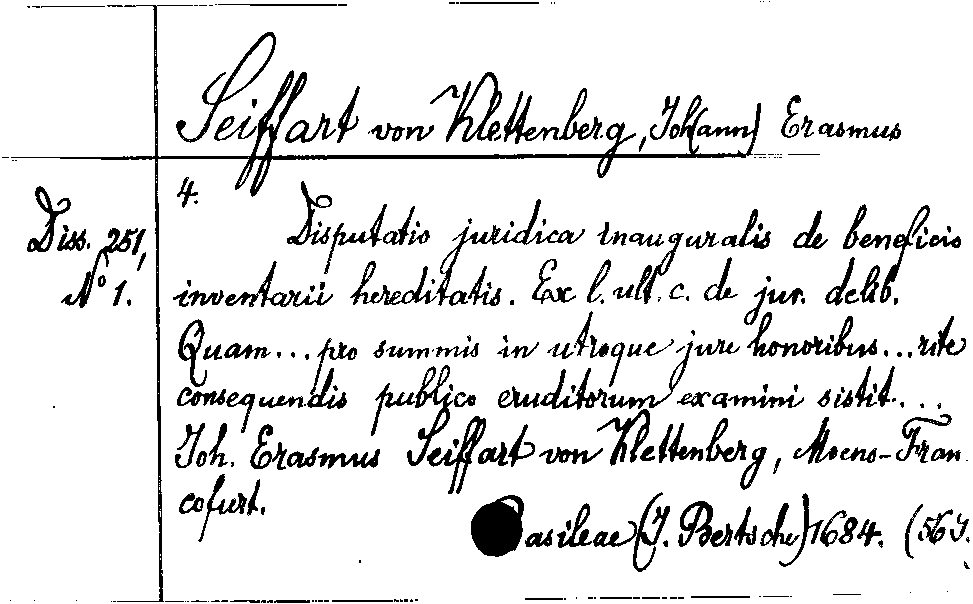 Seiffart von Klettenberg, Joh(ann) Erasmus
4.
Diss. 251,
No 1.
Disputatio juridica inauguralis de beneficio
inventarii hereditatis. Ex l. ult. c. de jur. delib.
Quam... pro summis in utroque jure honoribus... rite
consequendis publico eruditorum examini sistit...
Joh. Erasmus Seiffart von Klettenberg, Moeno-Fran
cofurt.
asileae (J. Bertsche) 1684. (56